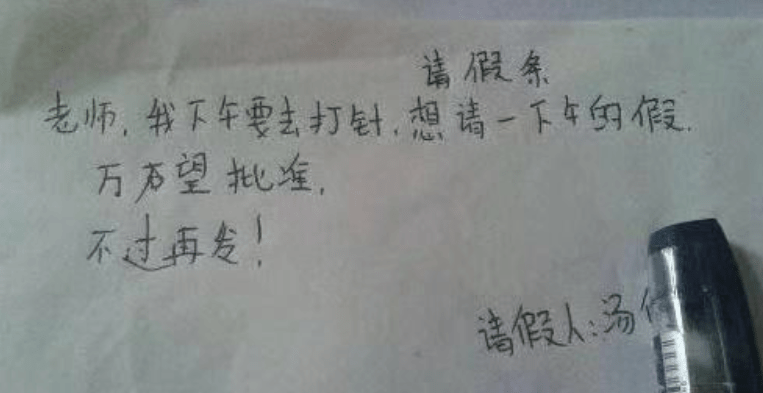 请假条
老师,我下午要去打针,想请一下午的假.
万万望批准,
不过再发!
请假人:汤